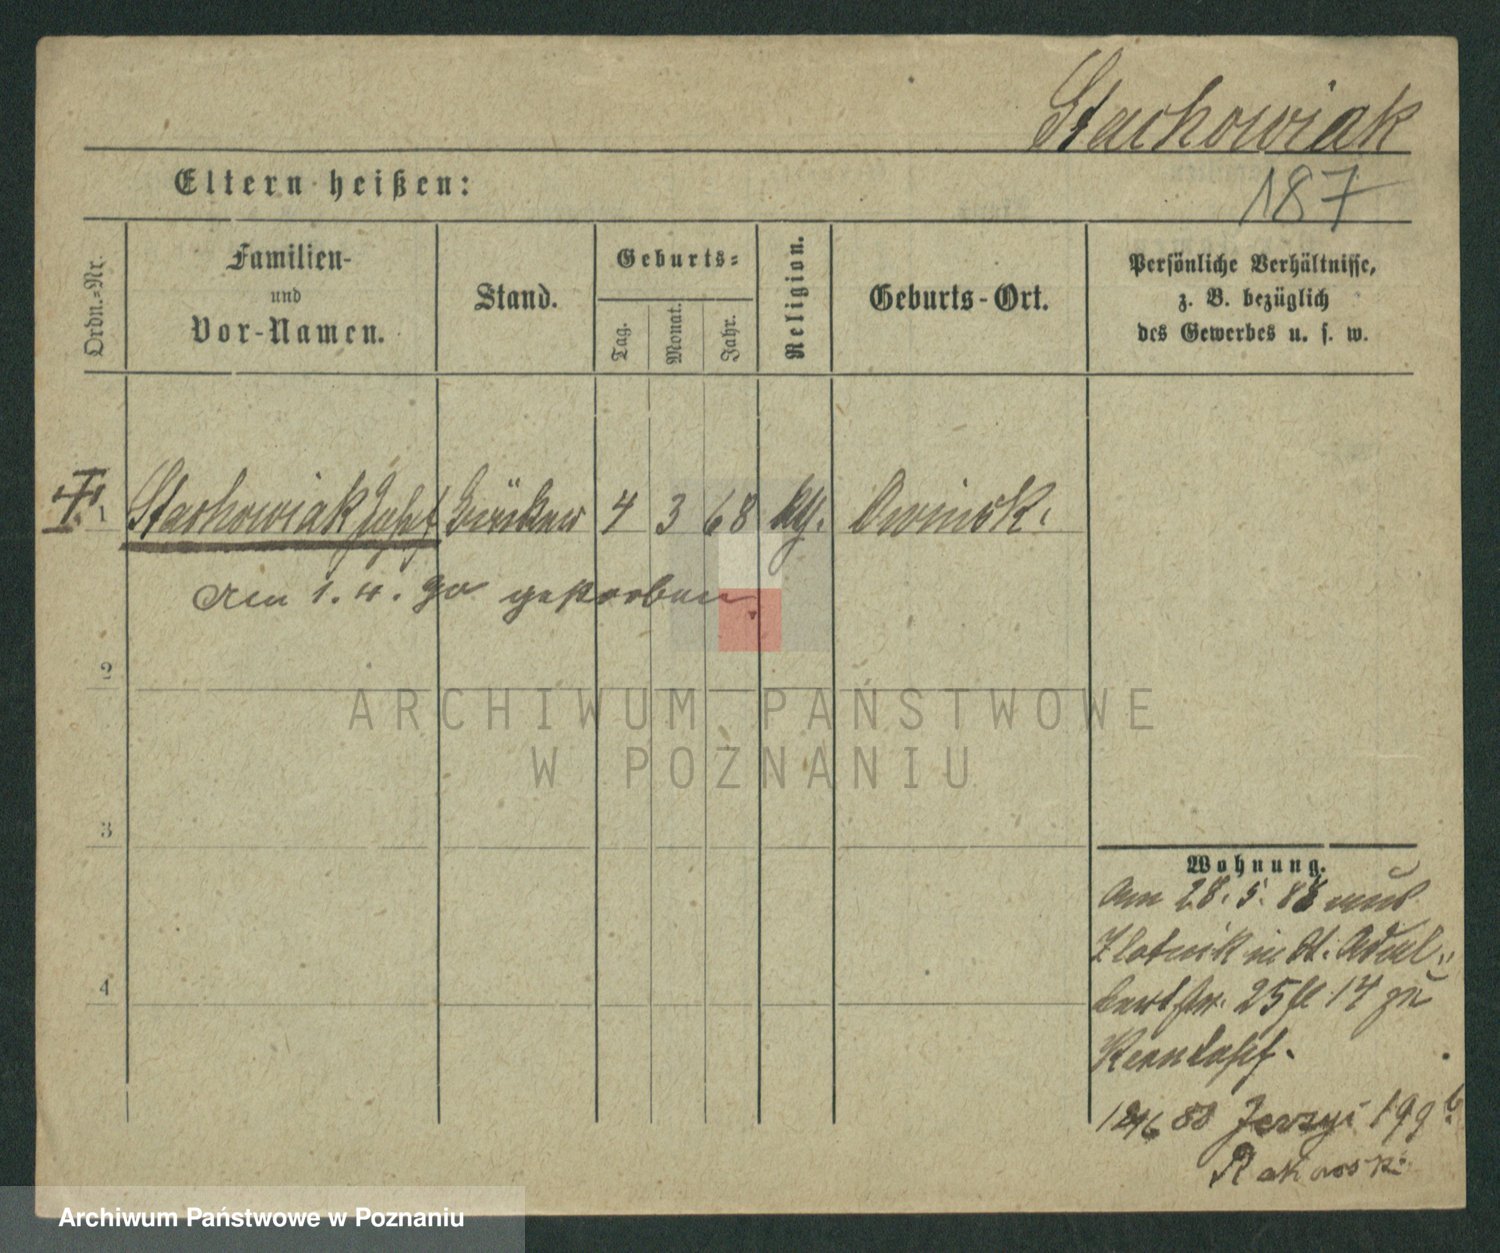 Stachowiak
Eltern heißen:
187
Ordn.-Nr.
Familien-
und
Vor-Namen.
Stand.
Geburts-
Tag.
Monat.
Jahr.
Religion.
Geburts-Ort.
Persönliche Verhältnisse,
z. B. bezüglich
des Gewerbes u. s. w.
1 Stachowiak Josef 4 3 68 kth. Owinsk.
Am 1. 4. 90 gestorben.
2
ARCHIWUM PAŃSTWOWE
W POZNANIU
3
Wohnung.
Am 28. 5. 88 von
Zlotnik in St. Adal-
bertstr. 25 14 zu
88 Jerzyi 199
4
Archiwum Państwowe w Poznaniu